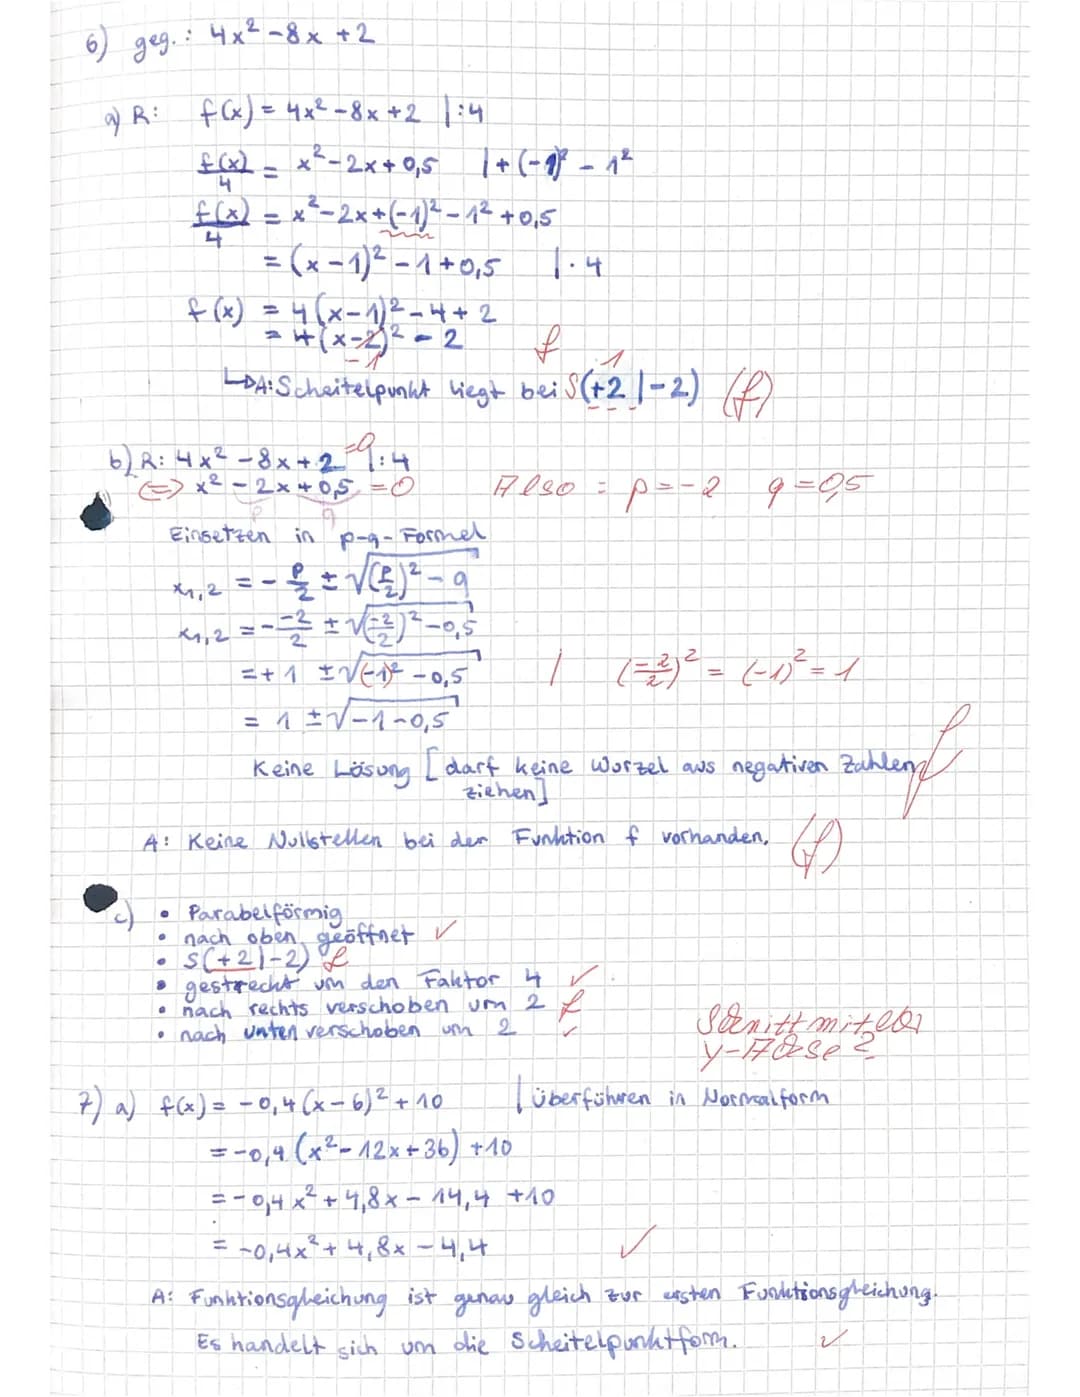 6) geg.: 4x² -8x +2
a) R: f(x) = 4x² -8x +2 |:4
f(x)/4 = x² -2x + 0,5 | + (-1)² - 1²
f(x)/4 = x² -2x + (-1)² - 1² + 0,5
= (x-1)² - 1 + 0,5 | · 4
f(x) = 4(x-1)² - 4 + 2
= 4(x-2)² - 2 f
-1 1
↳A: Scheitelpunkt liegt bei S(+2 | -2) (f)
b) R: 4x² - 8x + 2 =0 |:4
(=) x² - 2x + 0,5 = 0 Also : p = -2 q = 0,5
p q
Einsetzen in p-q-Formel
x1,2 = - p/2 ± √((p/2)² - q)
x1,2 = - -2/2 ± √((-2/2)² - 0,5)
= + 1 ± √((-1)² - 0,5) | (-2/2)² = (-1)² = 1
= 1 ± √(-1 - 0,5)
Keine Lösung [darf keine Wurzel aus negativen Zahlen f
ziehen]
A: Keine Nullstellen bei der Funktion f vorhanden. (f)
c) • Parabelförmig
• nach oben geöffnet ✓
• S(+2|-2) f
• gestreckt um den Faktor 4 ✓
• nach rechts verschoben um 2 f
• nach unten verschoben um 2 ✓
Schnitt mit der
y-Achse?
7) a) f(x) = -0,4(x-6)² + 10 | Überführen in Normalform
= -0,4 (x² - 12x + 36) + 10
= -0,4x² + 4,8x - 14,4 + 10
= -0,4x² + 4,8x - 4,4 ✓
A: Funktionsgleichung ist genau gleich zur ersten Funktionsgleichung.
Es handelt sich um die Scheitelpunktform. ✓